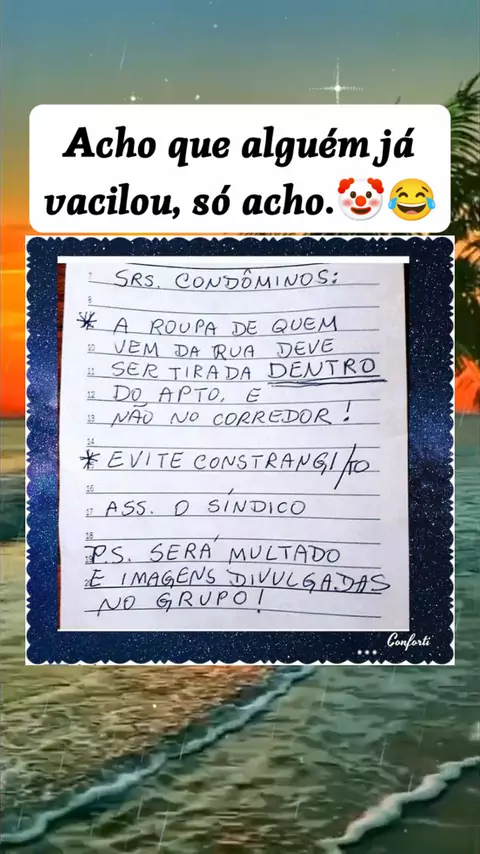 Acho que alguém já
vacilou, só acho.🤡😂
7 SRS. CONDÔMINOS:
8
* A ROUPA DE QUEM
10 VEM DA RUA DEVE
11 SER TIRADA DENTRO
12 DO APTO, E
13 NÃO NO CORREDOR!
14
* EVITE CONSTRANGI/TO
16
17 ASS. O SÍNDICO
18
19 PS. SERÁ MULTADO
E IMAGENS DIVULGADAS
NO GRUPO!
Conforti